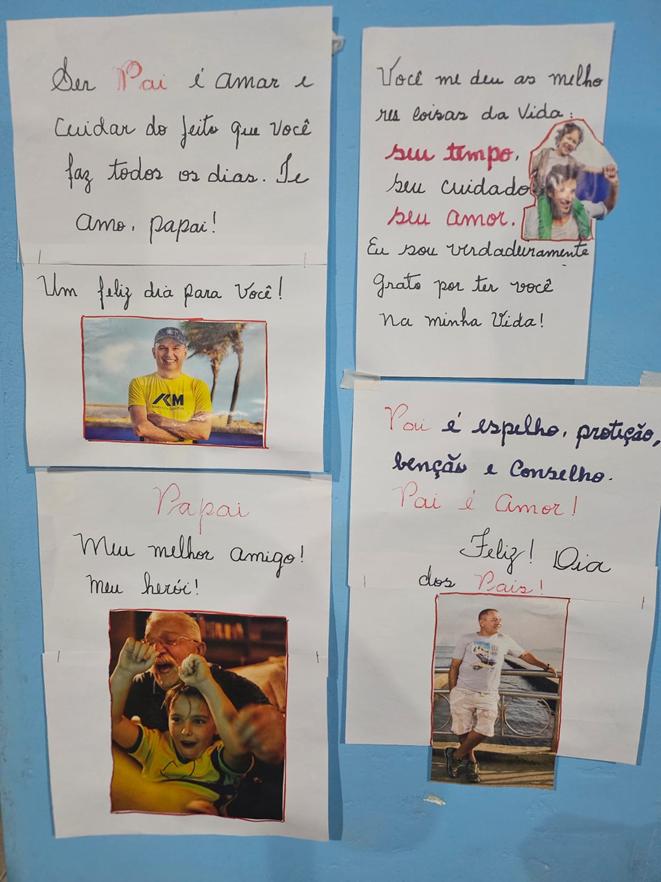 Ser Pai é amar e
cuidar do jeito que você
faz todos os dias. Te
amo, papai!
Um feliz dia para você!
KM
Você me deu as melho
res coisas da vida:
seu tempo,
seu cuidado
seu amor.
Eu sou verdadeiramente
grato por ter você
na minha vida!
Papai
Meu melhor amigo!
Meu herói!
Pai é espelho, proteção,
benção e conselho.
Pai é Amor!
Feliz! Dia
dos Pais!